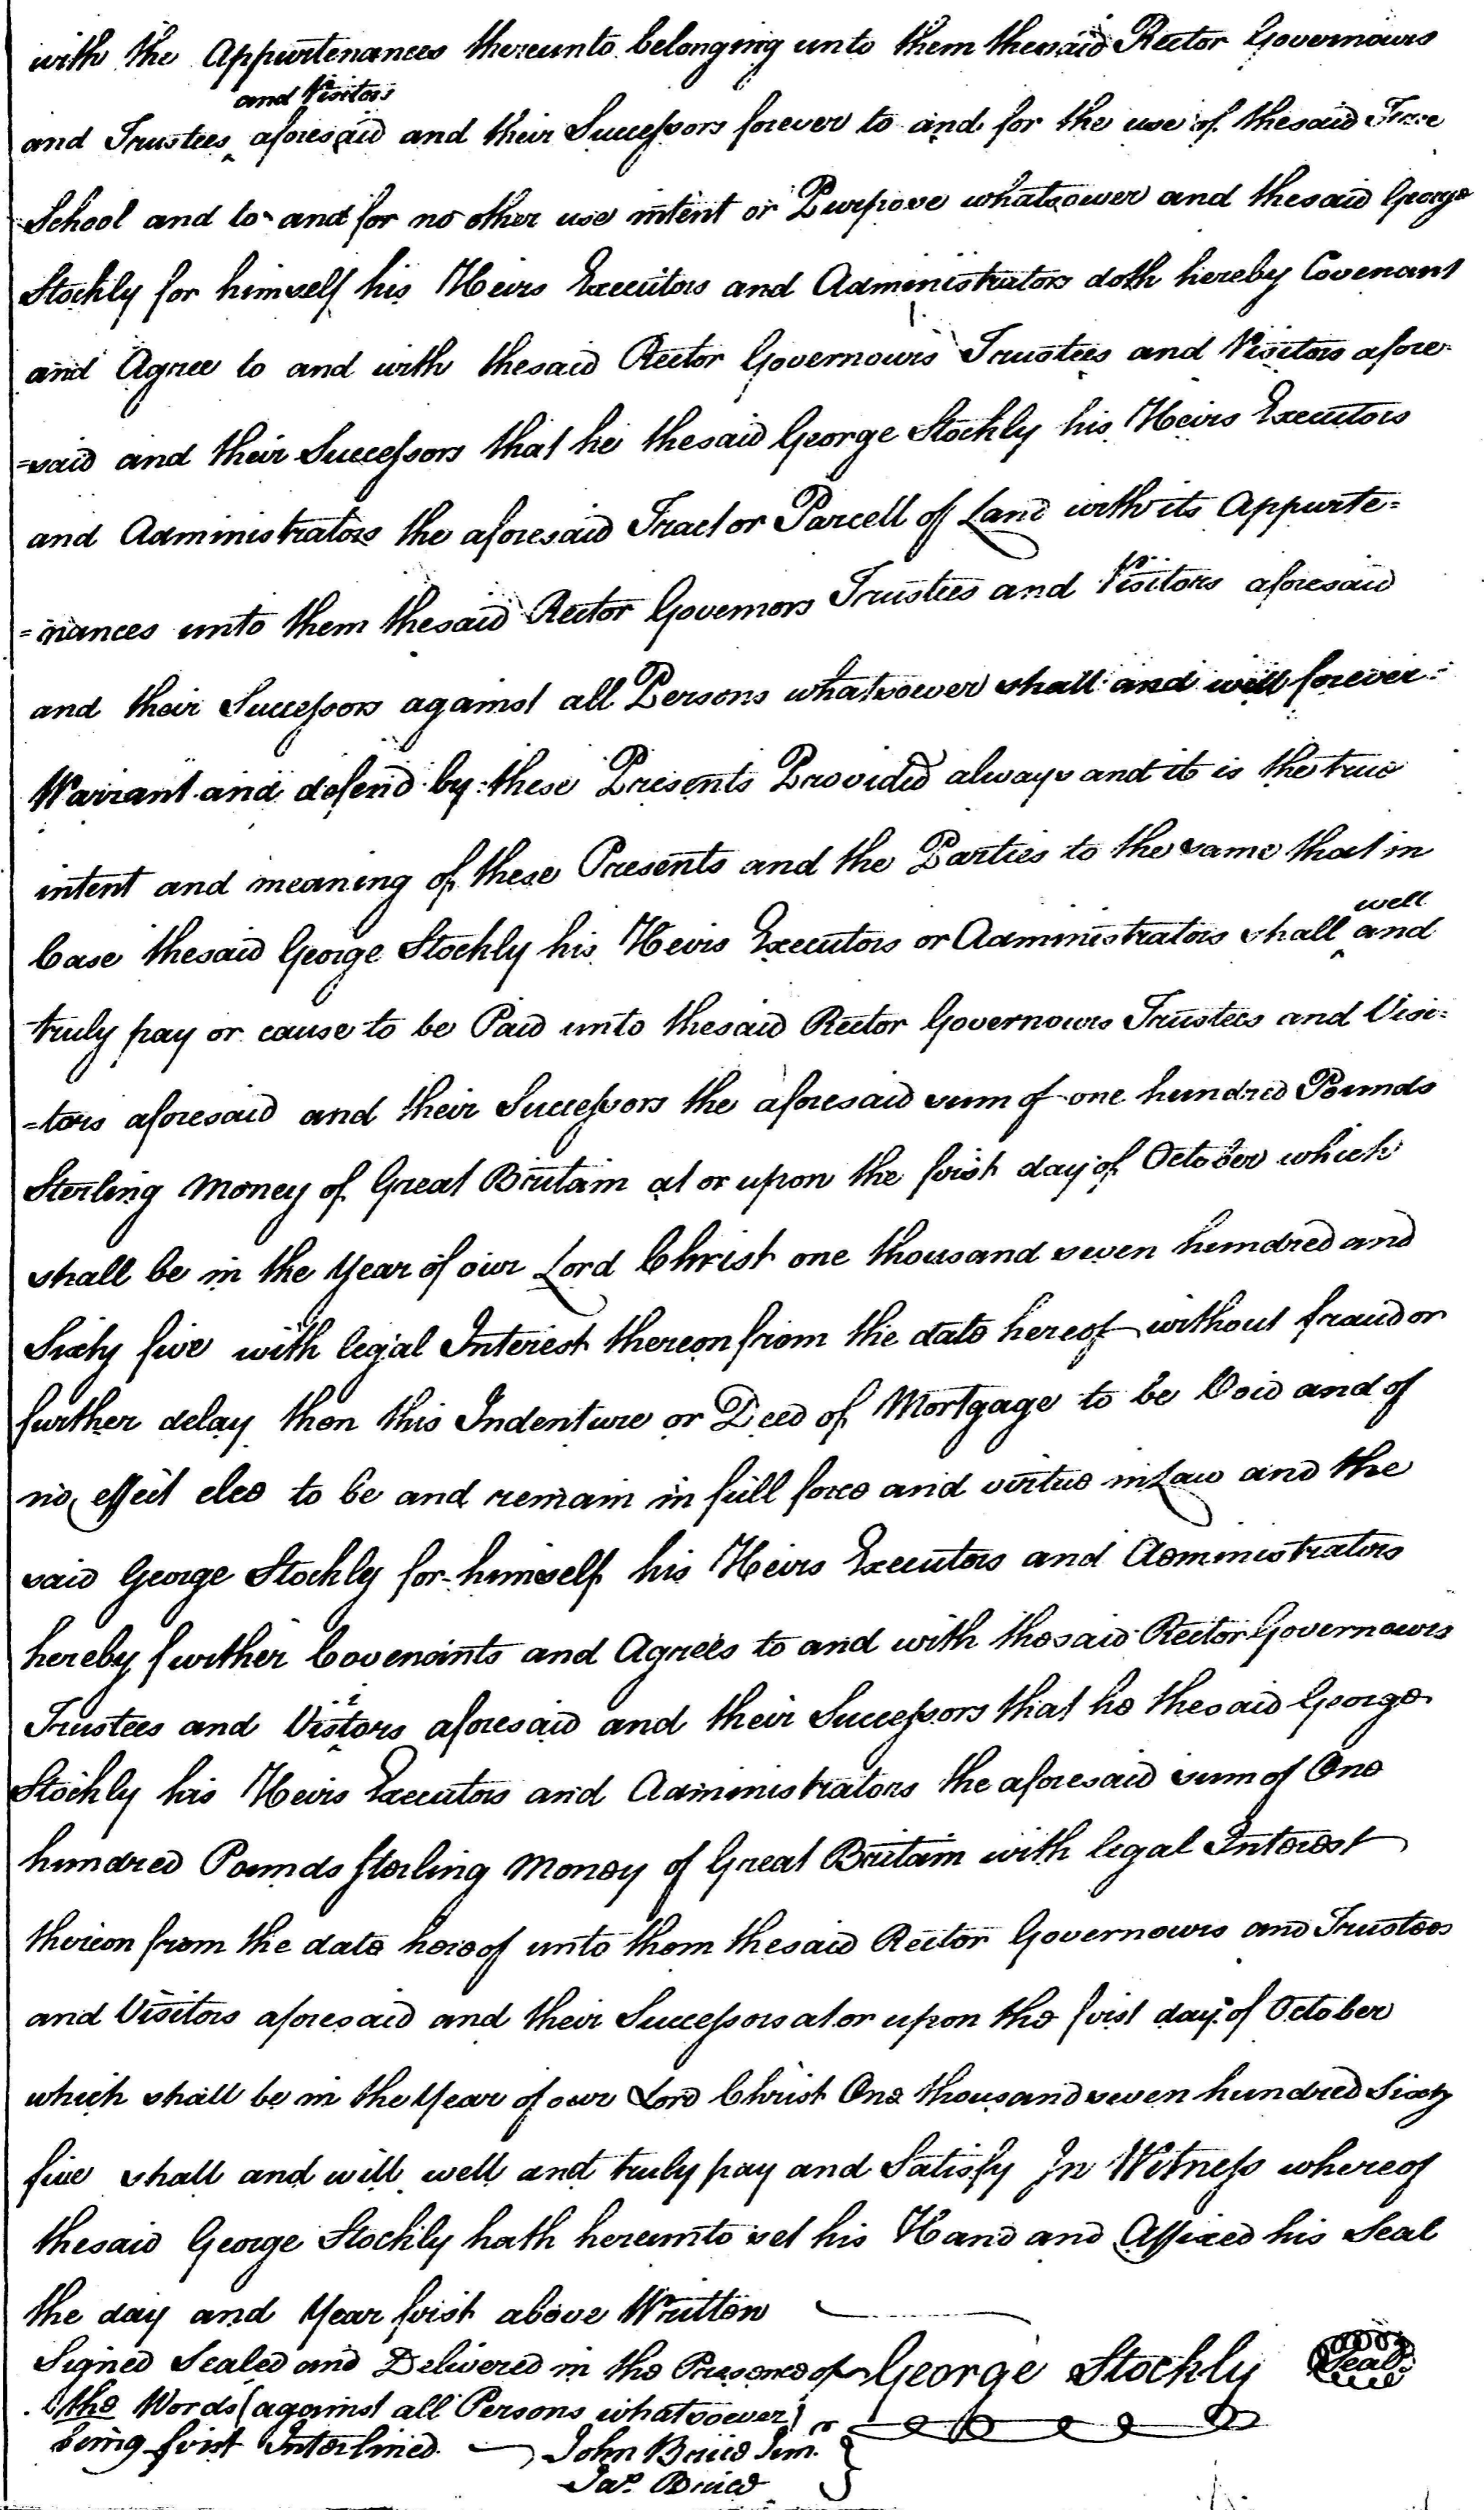 with the Appurtenances thereunto belonging unto them thesaid Rector Governours
and Visitors
and Trustees ‸ aforesaid and their Successors forever to and for the use of thesaid Free
School and to and for no other use intent or Purpose whatsoever and thesaid George
Stockly for himself his Heirs Executors and Administrators doth hereby Covenant
and Agree to and with thesaid Rector Governours Trustees and Visitors afore-
=said and their Successors that he thesaid George Stockly his Heirs Executors
and Administrators the aforesaid Tract or Parcell of Land with its Appurte=
=nances unto them thesaid Rector Governors Trustees and Visitors aforesaid
and their Successors against all Persons whatsoever shall and will forever
Warrant and defend by these Presents Provided always and it is the true
intent and meaning of these Presents and the Parties to the same that in
well
Case thesaid George Stockly his Heirs Executors or Administrators shall ‸ and
truly pay or cause to be Paid unto thesaid Rector Governours Trustees and Visi=
=tors aforesaid and their Successors the aforesaid sum of one hundred Pounds
Sterling Money of Great Britain at or upon the first day of October which
shall be in the Year of our Lord Christ one thousand seven hundred and
Sixty five with legal Interest thereon from the date hereof without fraud or
further delay then this Indenture or Deed of Mortgage to be Void and of
no effect else to be and remain in full force and virtue in Law and the
said George Stockly for himself his Heirs Executors and Administrators
hereby further Covenants and Agrees to and with thesaid Rector Governours
Trustees and Visitors aforesaid and their Successors that he thesaid George
Stockly his Heirs Executors and Administrators the aforesaid sum of One
hundred Pounds Sterling Money of Great Britain with legal Interest
thereon from the date hereof unto them thesaid Rector Governours and Trustees
and Visitors aforesaid and their Successors at or upon the first day of October
which shall be in the Year of our Lord Christ One thousand seven hundred Sixty
five shall and will well and truly pay and Satisfy In Witness whereof
thesaid George Stockly hath hereunto set his Hand and Affixed his Seal
the day and Year first above Written
Signed Sealed and Delivered in the Presence of George Stockly Seal
the Words (against all Persons whatsoever)
being first Interlined John Bruce Jun.r
Jas. Bruce